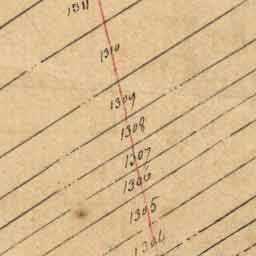 1311
1310
1309
1308
1307
1306
1305
1304